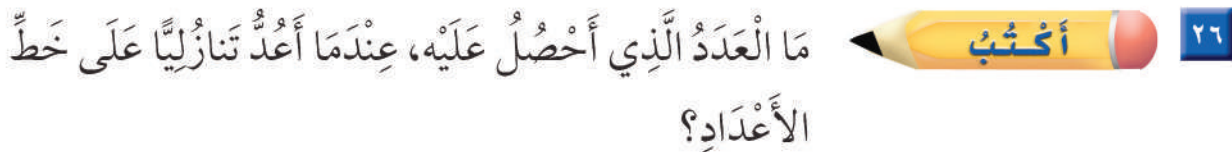 ٢٦ أَكْتُبُ مَا الْعَدَدُ الَّذِي أَحْصُلُ عَلَيْه، عِنْدَمَا أَعُدُّ تَنازُلِيًّا عَلَى خَطِّ
الأَعْدَادِ؟